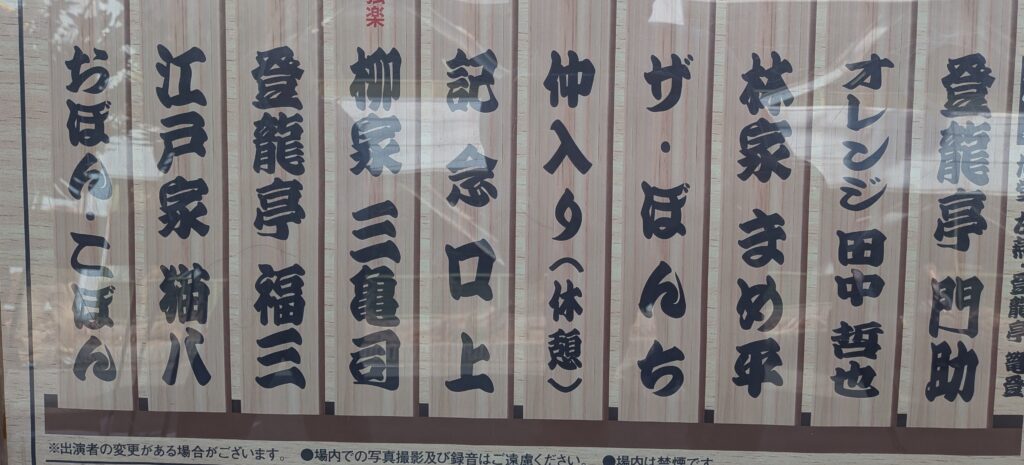 登龍亭 門助
オレンジ 田中 哲也
林家 まめ平
ザ・ぼんち
仲入り(休憩)
記念口上
柳家 三亀司
登龍亭 福三
江戸家 猫八
おぼん・こぼん
※出演者の変更がある場合がございます。 ●場内での写真撮影及び録音はご遠慮ください。 ●場内は禁煙です